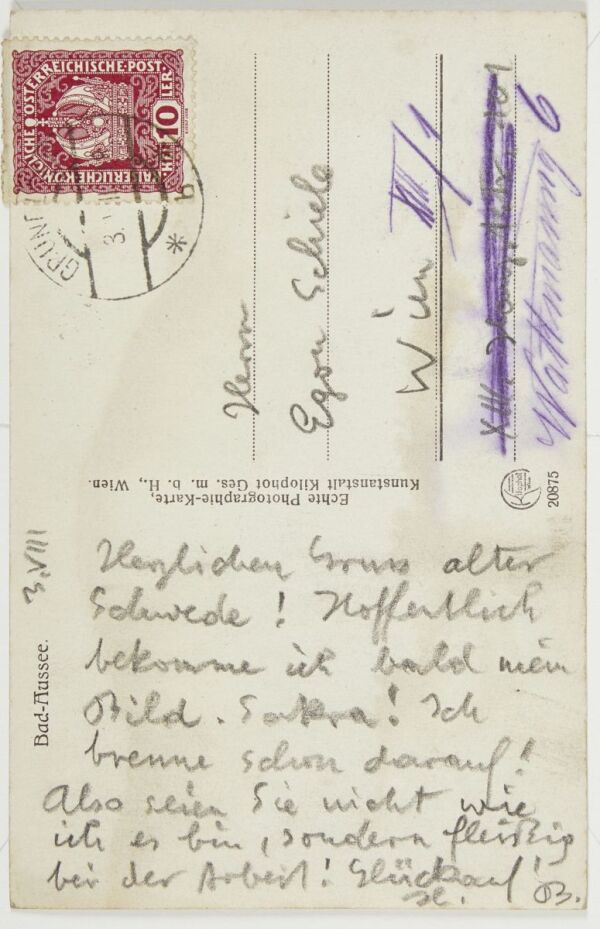 KAISERLICHE KÖNIGLICHE ÖSTERREICHISCHE POST
10 HELLER
b
Herrn
Egon Schiele
Wien XIII/1
Wattmanng 6
Echte Photographie-Karte,
Kunstanstalt Kilophot Ges. m. b. H., Wien.
Kilophot
20875
Bad-Aussee.
3.VIII
Herzlichen Gruss alter
Schwede! Hoffentlich
bekomme ich bald mein
Bild. Sakra! Ich
brenne schon darauf!
Also seien Sie nicht wie
ich es bin, sondern fleißig
bei der Arbeit! Glückauf!
B.